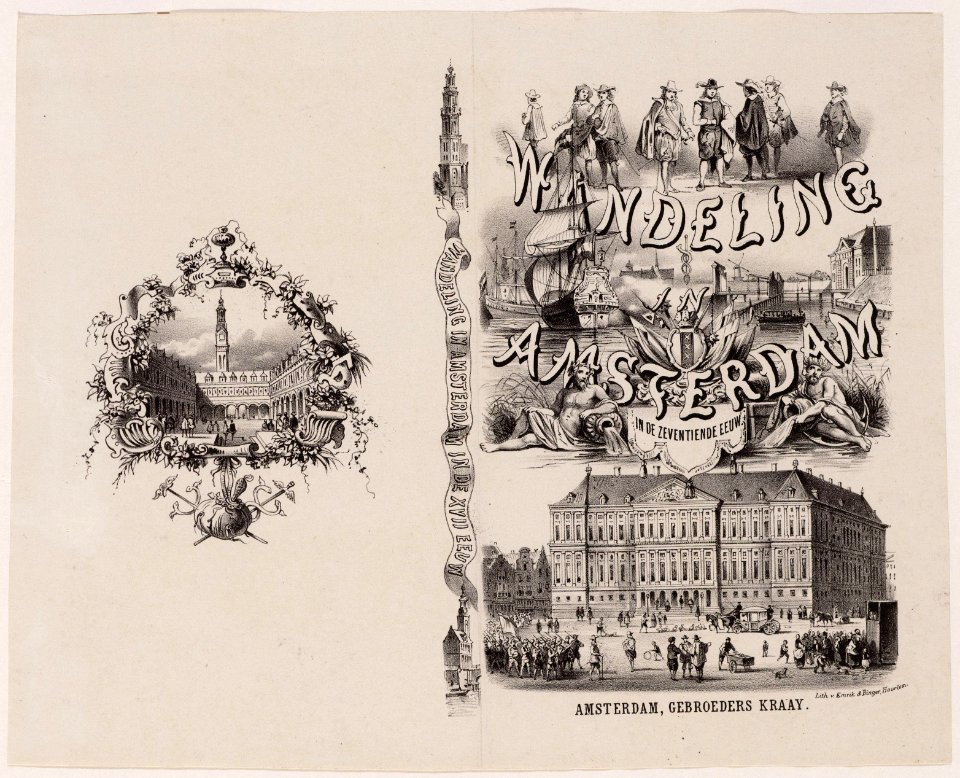 WANDELING IN AMSTERDAM IN DE XVII EEUW
WANDELING
IN
AMSTERDAM
IN DE ZEVENTIENDE EEUW.
Lith. v. Emrik & Binger, Haarlem.
AMSTERDAM, GEBROEDERS KRAAY.